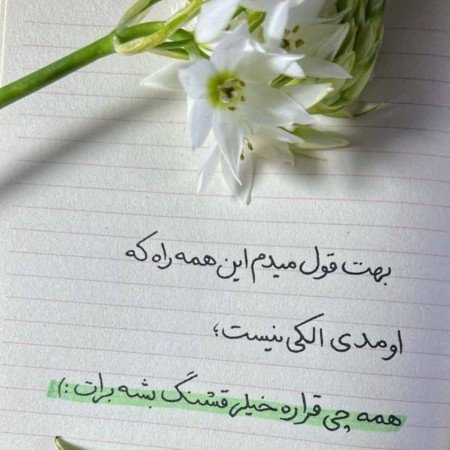 بهت قول میدم این همه راه که
اومدی الکی نیست؛
همه چی قراره خیلی قشنگ بشه برات :)